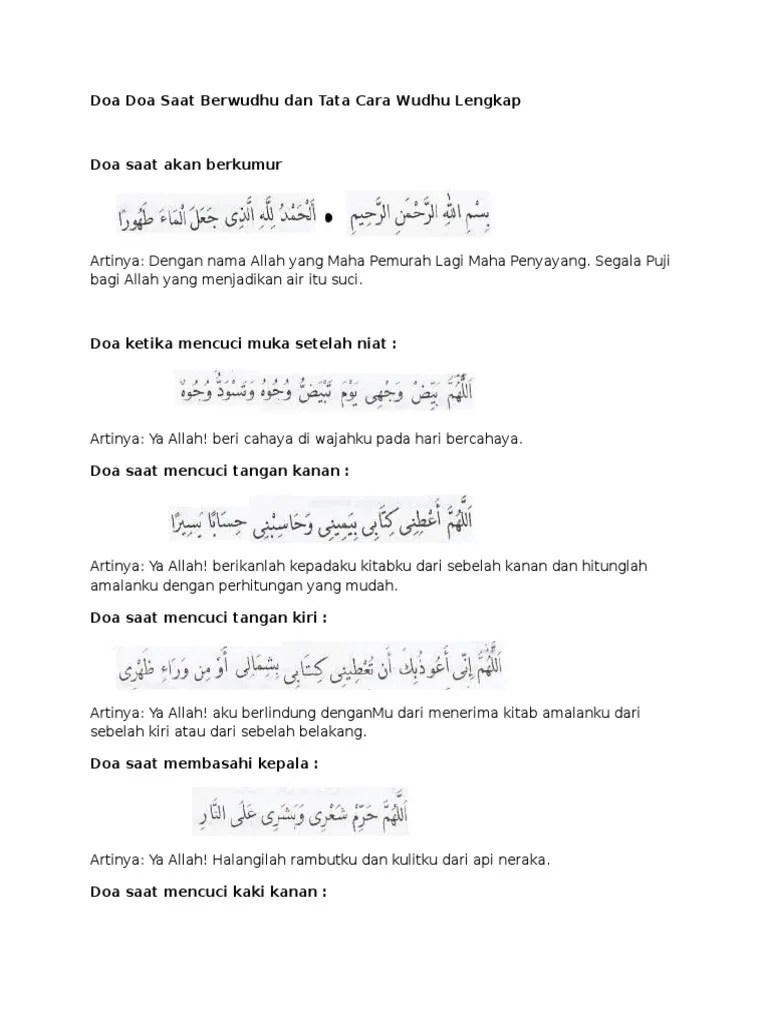 Doa Doa Saat Berwudhu dan Tata Cara Wudhu Lengkap
Doa saat akan berkumur
بِسْمِ اللهِ الرَّحْمَنِ الرَّحِيمِ • اَلْحَمْدُ لِلَّهِ الَّذِى جَعَلَ الْمَاءَ طَهُورًا
Artinya: Dengan nama Allah yang Maha Pemurah Lagi Maha Penyayang. Segala Puji
bagi Allah yang menjadikan air itu suci.
Doa ketika mencuci muka setelah niat :
اَللَّهُمَّ بَيِّضْ وَجْهِى يَوْمَ تَبْيَضُّ وُجُوهُ وَتَسْوَدُّ وُجُوهٌ
Artinya: Ya Allah! beri cahaya di wajahku pada hari bercahaya.
Doa saat mencuci tangan kanan :
اَللَّهُمَّ أَعْطِنِى كِتَابِى بِيَمِينِى وَحَاسِبْنِى حِسَابًا يَسِيرًا
Artinya: Ya Allah! berikanlah kepadaku kitabku dari sebelah kanan dan hitunglah
amalanku dengan perhitungan yang mudah.
Doa saat mencuci tangan kiri :
اَللَّهُمَّ إِنِّى أَعُوذُبِكَ أَن تُعْطِيَنِى كِتَابِى بِشِمَالِى أَوْ مِن وَرَاءِ ظَهْرِى
Artinya: Ya Allah! aku berlindung denganMu dari menerima kitab amalanku dari
sebelah kiri atau dari sebelah belakang.
Doa saat membasahi kepala :
اَللَّهُمَّ حَرِّمْ شَعْرِى وَبَشَرِى عَلَى النَّارِ
Artinya: Ya Allah! Halangilah rambutku dan kulitku dari api neraka.
Doa saat mencuci kaki kanan :